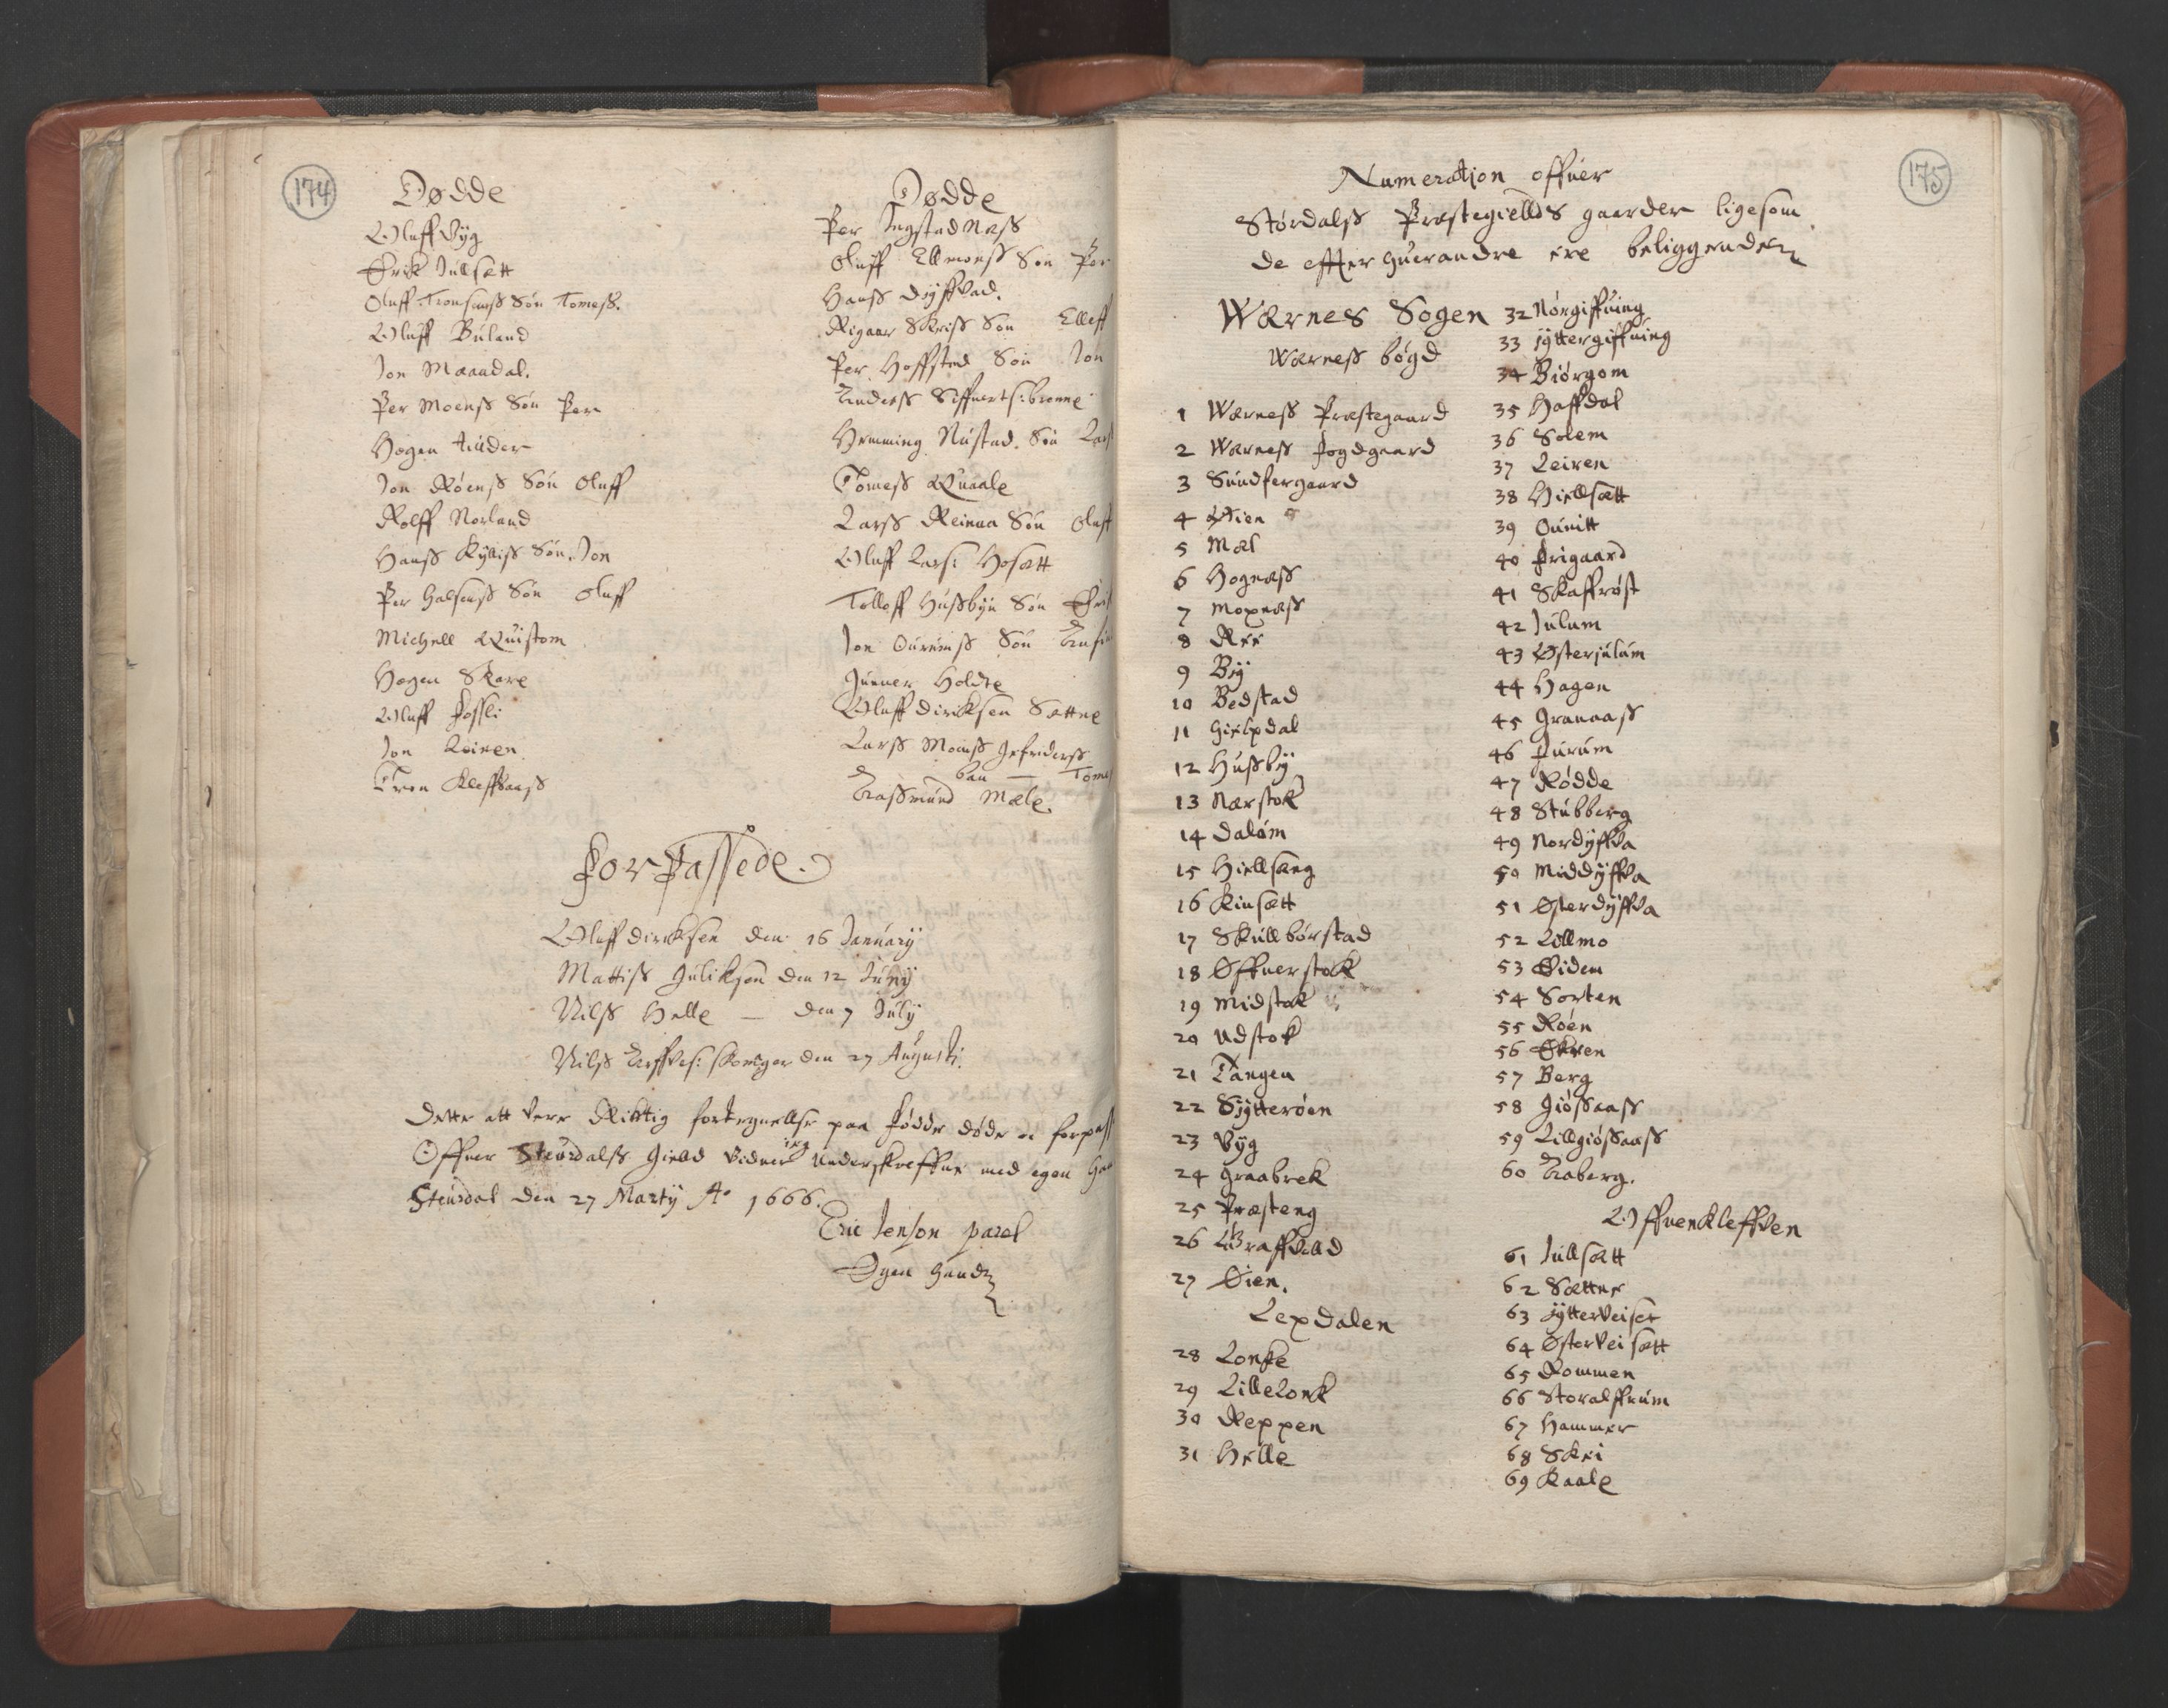 174
Dødde
Oluff Vyg
Erik Jullsett
Oluff Tronsenss Søn Tomess.
Oluff Buland
Jon Maandal.
Per Moenss Søn Per
Hagen
Jon Røenss Søn Oluff
Rolff Norland
Hanss Kylliss Søn Jon
Per Halsenss Søn Oluff
Michell Quistom
Hagen Skare
Oluff Fossli
Jon Leiren
Tron Kleffsaass
Dødde
Per Ingstad Næss
Oluff Ellmonss Søn Per
Hanss Dyffvad.
Rigaar Skriss Søn Elleff
Per Hoffstad Søn Jon
Anderss
Hemming Rustad. Søn Lars
Tomess Quaale
Larss Reinaa Søn Oluff
Oluff Lars: Hosætt
Tolloff Hussbyn Søn
Jon Søn
Gunner Holdte
Oluff Dircksen Sættne
Larss Moenss
ban — Tomes
Aassmund Mæle.
Forpassede.
Oluff Dircksen den 16 January
Mattiss Guliksøn den 12 Juny
Nilss Helle — den 7 July
Nilss den 27 Augusti.
Dette att vere Rictig fortegnellse paa fødde døde oc forpass
Offuer Steurdalss Gield Vidner ieg Underskreffne med egen Haa
Steurdal den 27 Marty Ao 1666.
Eric Jenson parel
Egen Haandt
175
Numeration offuer
Størdalss Præstegiellds gaarder ligesom
de effter huerandre ere beliggenden
Wærnes Sogen
Wærness bøgd
1 Wærness Præstegaard
2 Wærness Fogdgaard
3 Sundfergaard
4 Øien
5 Mæl
6 Hognæss
7 Moxnæss
8 Ree
9 By
10 Bedstad
11 Gielpdal
12 Hussby
13 Nærstok
14 Dalum
15 Hiellsæng
16 Kinsett
17 Skullbørstad
18 Øffuerstok
19 Midstok
20 Udstok
21 Tangen
22 Sytterøen
23 Vyg
24 Graabrek
25 Præsteng
26 Graffvold
27 Øien.
Lexdalen
28 Lonke
29 Lillelonk
30 Reppen
31 Helle
32 Nørgiffuing
33 Yttergiffuing
34 Biørgom
35 Haffdal
36 Solem
37 Leiren
38 Hiellsætt
39 Ouuitt
40 Frigaard
41 Skaffrøst
42 Julum
43 Østerjulum
44 Hagen
45 Granaass
46 Furum
47 Rødde
48 Stubberg
49 Nordyffva
50 Middyffva
51 Østerdyffva
52 Lillmo
53 Eiden
54 Sorten
55 Røen
56 Ekren
57 Berg
58 Giøssaass
59 Lillgiøssaass
60 Aaberg.
Offuenkleffven
61 Jullsætt
62 Sættne
63 Ytterveiset
64 Østerveisett
65 Rommen
66 Storalffrum
67 Hammer
68 Skei
69 Kaale